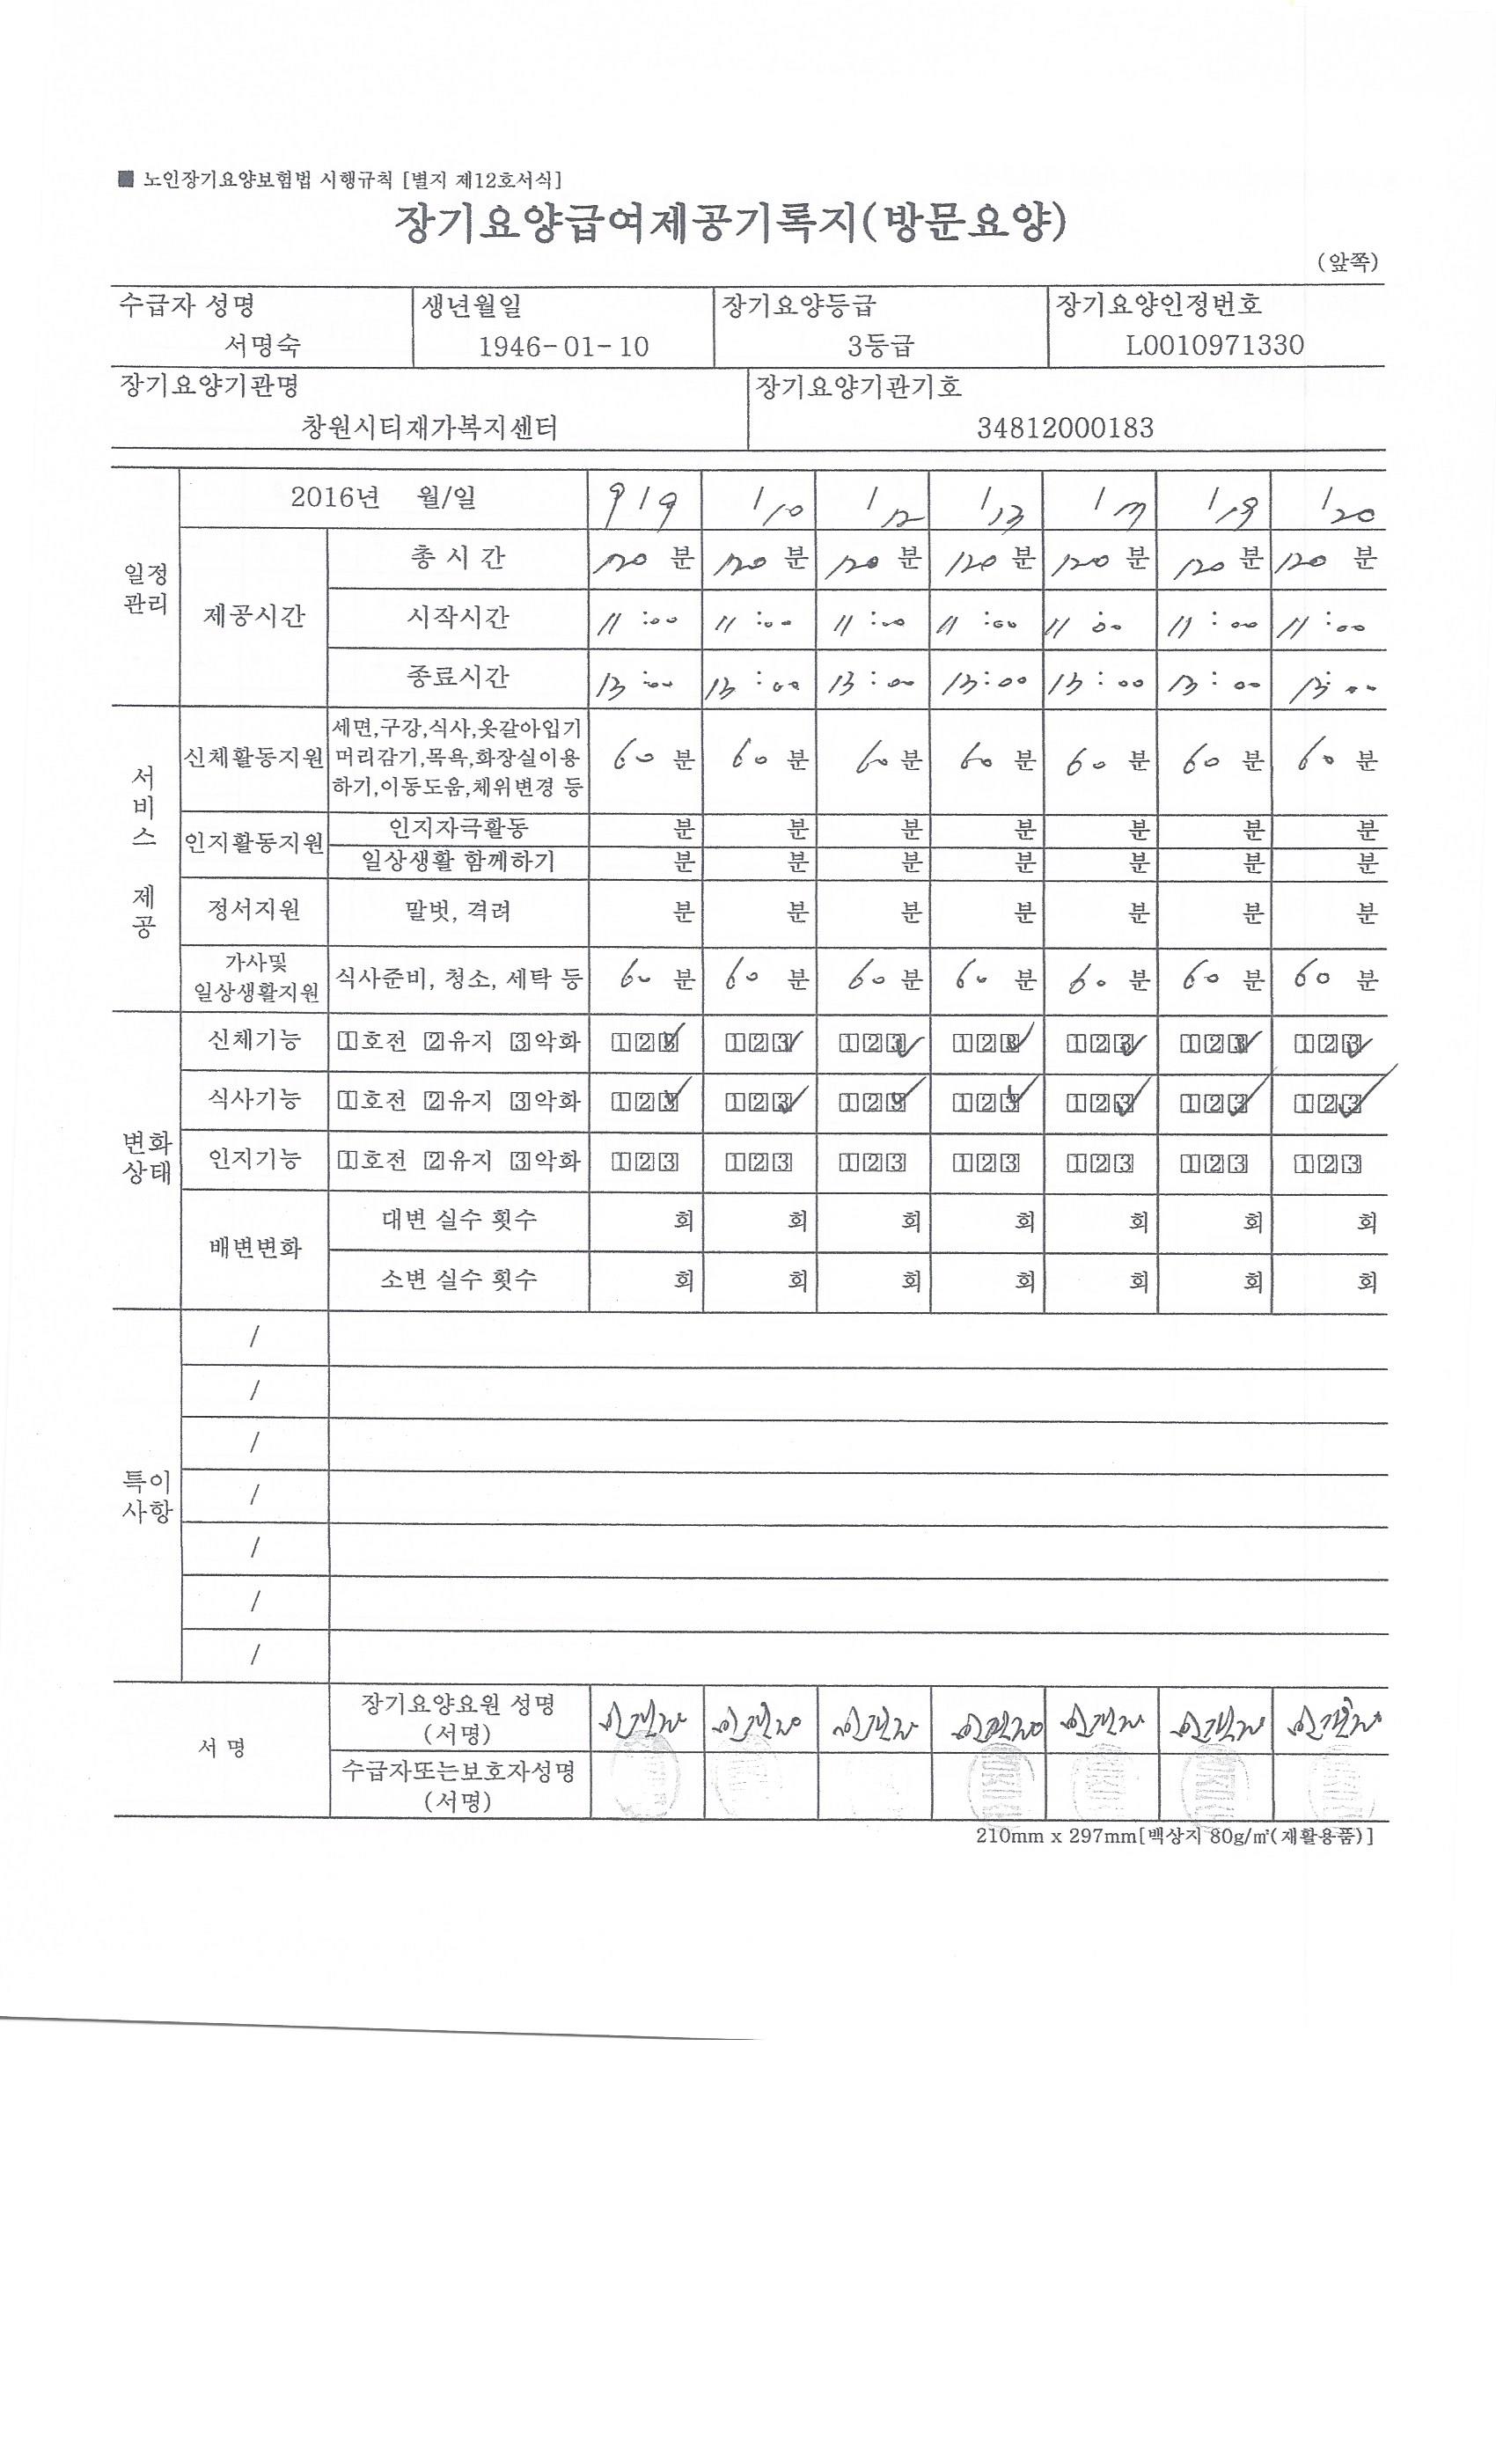 ■ 노인장기요양보험법 시행규칙 [별지 제12호서식]
장기요양급여제공기록지(방문요양)
(앞쪽)
수급자 성명 생년월일 장기요양등급 장기요양인정번호
서명숙 1946-01-10 3등급 L0010971330
장기요양기관명 장기요양기관기호
창원시티재가복지센터 34812000183
일정관리
2016년 월/일 9/9 /10 /12 /13 /17 /19 /20
제공시간
총 시 간 120 분 120 분 120 분 120 분 120 분 120 분 120 분
시작시간 11:00 11:00 11:00 11:00 11:00 11:00 11:00
종료시간 13:00 13:00 13:00 13:00 13:00 13:00 13:00
서비스 제공
신체활동지원
세면,구강,식사,옷갈아입기
머리감기,목욕,화장실이용
하기,이동도움,체위변경 등
60 분 60 분 60 분 60 분 60 분 60 분 60 분
인지활동지원
인지자극활동 분 분 분 분 분 분 분
일상생활 함께하기 분 분 분 분 분 분 분
정서지원 말벗, 격려 분 분 분 분 분 분 분
가사및
일상생활지원
식사준비, 청소, 세탁 등 60 분 60 분 60 분 60 분 60 분 60 분 60 분
변화상태
신체기능 1호전 2유지 3악화 123 123 123 123 123 123 123
식사기능 1호전 2유지 3악화 123 123 123 123 123 123 123
인지기능 1호전 2유지 3악화 123 123 123 123 123 123 123
배변변화
대변 실수 횟수 회 회 회 회 회 회 회
소변 실수 횟수 회 회 회 회 회 회 회
특이사항
/
/
/
/
/
/
/
서 명
장기요양요원 성명
(서명)
수급자또는보호자성명
(서명)
210mm x 297mm[백상지 80g/㎡(재활용품)]